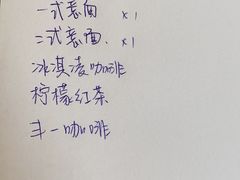 一式意面 x1
二式意面. x1
冰淇凌咖啡
柠檬红茶
咖啡